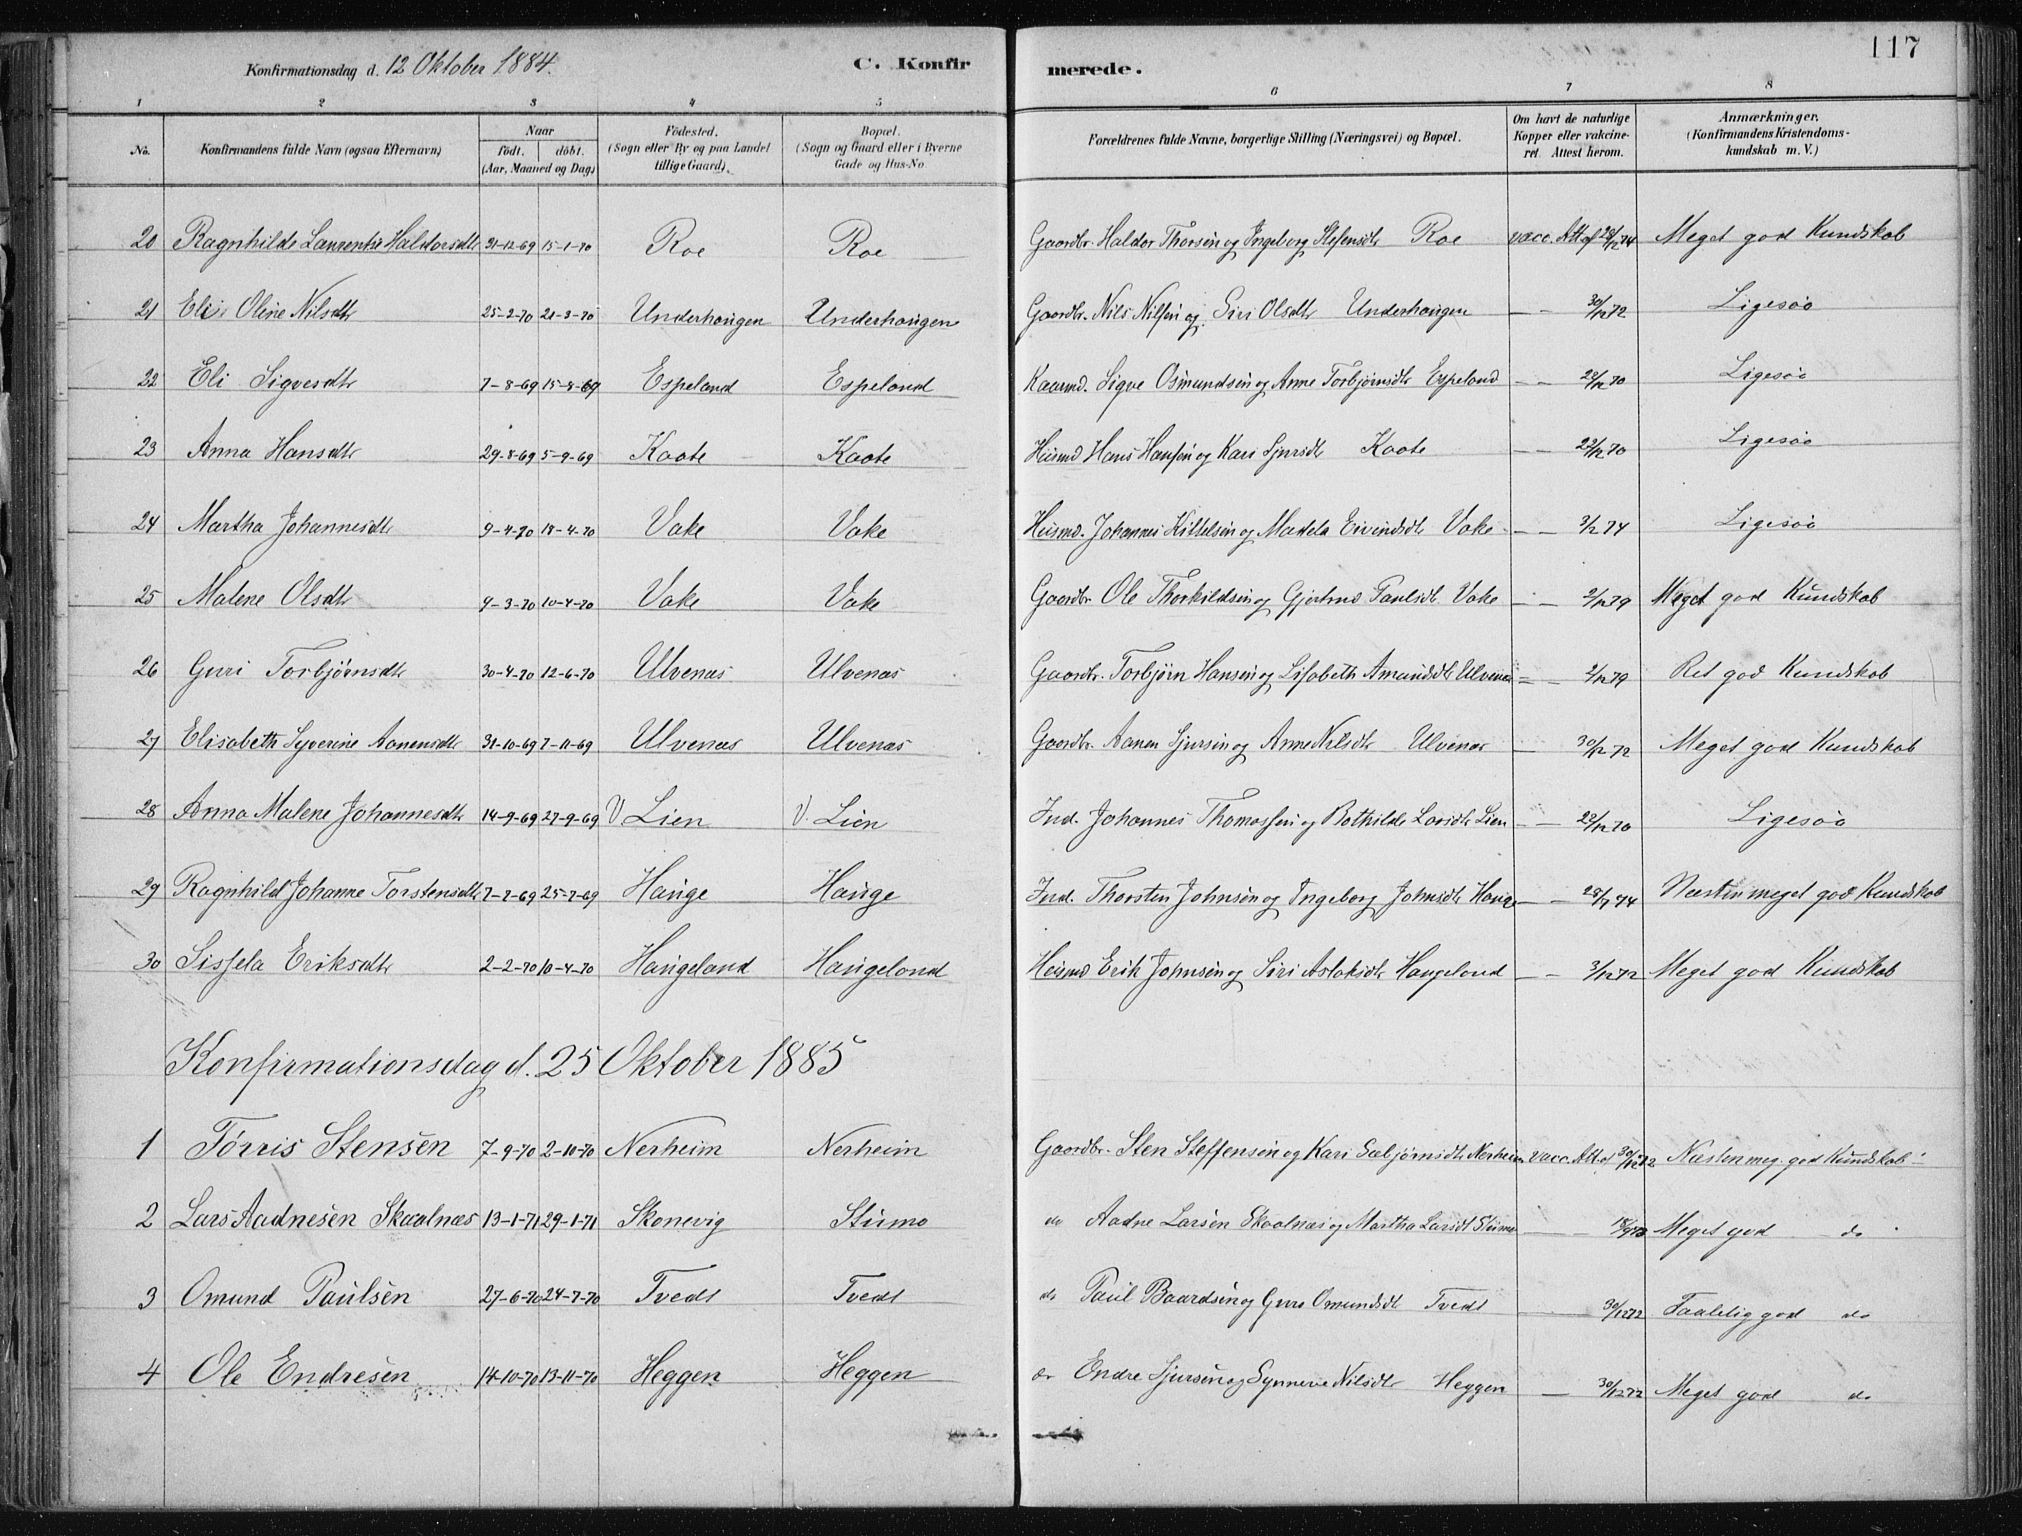 Konfirmationsdag d. 12 Oktober 1884. C. Konfirmerede. 117
1 2 3 4 5 6 7 8
No. Konfirmandens fulde Navn (ogsaa Efternavn). Naar født. døbt. (Aar, Maaned og Dag) Fødested. (Sogn eller By og paa Landet tillige Gaard). Bopæl. (Sogn og Gaard eller i Byerne Gade og Hus-No Forældrenes fulde Navne, borgerlige Stilling (Næringsvei) og Bopæl. Om havt de naturlige Kopper eller vakcineret. Attest herom. Anmærkninger. (Konfirmandens Kristendomskundskab m. V.)
20 Ragnhilde Laurentse Haldorsdtr 31-12-69 15-1-70 Roe Roe Gaardbr. Haldor Thorsen og Ingeborg Stefensdtr Roe vacc. Att. af 28/12 74 Meget god Kundskab
21 Eli Oline Nilsdtr 25-2-70 21-3-70 Underhougen Underhougen Gaardbr. Nils Nilsen og Siri Olsdtr Underhougen — — 30/12 72 Ligesaa
22 Eli Sigvesdtr 7-8-69 15-8-69 Espeland Espeland Kaarmd. Sigve Osmundsen og Anne Torbjørnsdtr Espeland — — 28/12 70 Ligesaa
23 Anna Hansdtr 29-8-69 5-9-69 Kaate Kaate Husmd Hans Hansen og Kari Sjursdtr Kaate — — 22/12 70 Ligesaa
24 Martha Johannesdtr 9-4-70 18-4-70 Vake Vake Husmd. Johannes Kittelsen og Madela Eivendsdtr Vake — — 3/12 74 Ligesaa
25 Malene Olsdtr 9-3-70 10-4-70 Vake Vake Gaardbr Ole Thorkildsen og Gjertrud Paulsdtr Vake — — 2/12 79 Meget god Kundskab
26 Guri Torbjørnsdtr 30-4-70 12-6-70 Ulvenæs Ulvenæs Gaardbr. Torbjørn Hansen og Lisabeth Amundsdtr Ulvenæs — — 2/12 79 Ret god Kundskab
27 Elisabeth Syverine Aanensdtr 31-10-69 7-11-69 Ulvenæs Ulvenæs Gaardbr. Aanen Sjursen og Anne Nilsdtr Ulvenæs — 30/12 72 Meget god Kundskab
28 Anna Malene Johannesdtr 14-9-69 27-9-69 V Lien V. Lien Ind. Johannes Thomassen og Bothilde Larsdtr Lien — — 28/12 70 Ligesaa
29 Ragnhild Johanne Torstensdtr 7-7-69 25-7-69 Hauge Hauge Ind. Thorsten Johnsen og Ingeborg Johnsdtr Hauge — — 28/7 74 Næsten meget god Kundskab
30 Sissela Eriksdtr 2-2-70 10-4-70 Haugeland Haugeland Husmd Erik Johnsen og Siri Aslaksdtr Haugeland — — 3/12 72 Meget god Kundskab
Konfirmationsdag d. 25 Oktober 1885
1 Tørris Stensen 7-9-70 2-10-70 Nerheim Nerheim Gaardbr. Sten Steffensen og Kari Sæbjørnsdtr Nerheim vacc. Att. af 30/12 72 Næsten meg. god Kundskab
2 Lars Aadnesen Skaalnæs 13-1-71 29-1-71 Skonevig Stumo do Aadne Larsen Skaalnæs og Martha Larsdt Stumo Meget god do
3 Omund Paulsen 27-6-70 24-7-70 Tvedt Tvedt do Paul Baardsen og Guro Omundsdtr Tvedt 30/12 72 Taalelig god do
4 Ole Endresen 14-10-70 13-11-70 Heggen Heggen do Endre Sjursen og Synneve Nilsdtr Heggen — 30/12 72 Meget god do